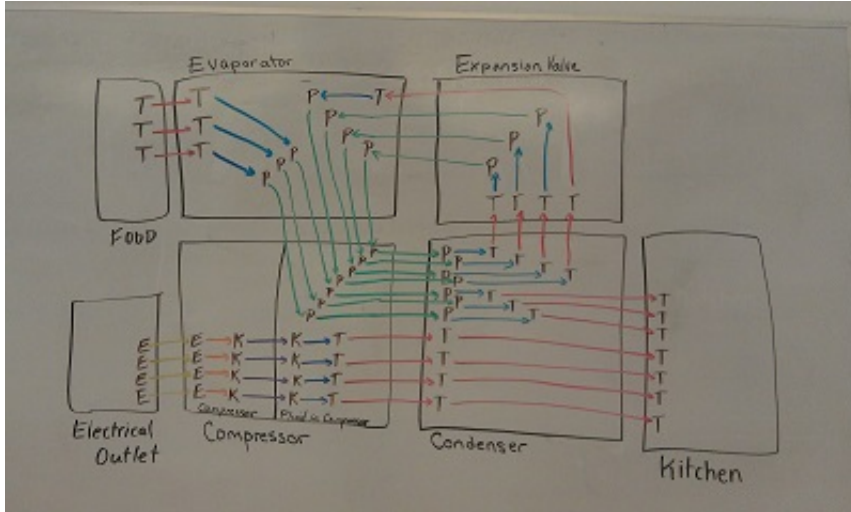 Evaporator
Expansion Valve
T T P T
P P
T T P P
T T P P
P P
T T T T
Food
P P T
P P T
P P T
P P T
P P T T
P P T T
P P T T
E E K K T T T
E E K K T T T
E E K K T T T
E E K K T T T
Compressor
Fluid in Compressor
Electrical
Outlet
Compressor
Condenser
Kitchen